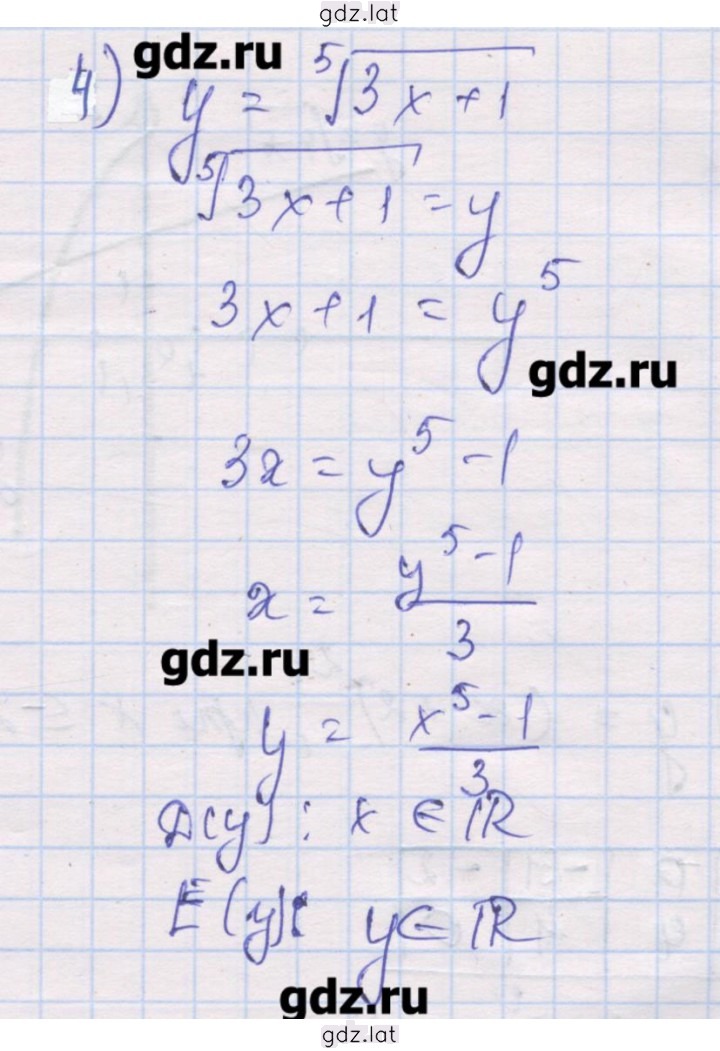 gdz.lat
gdz.ru
4) y = ⁵√(3x+1)
⁵√(3x+1) = y
3x+1 = y⁵
gdz.ru
3x = y⁵-1
x = (y⁵-1)/3
gdz.ru
y = (x⁵-1)/3
D(y): x ∈ ℝ
E(y): y ∈ ℝ
gdz.ru
gdz.lat